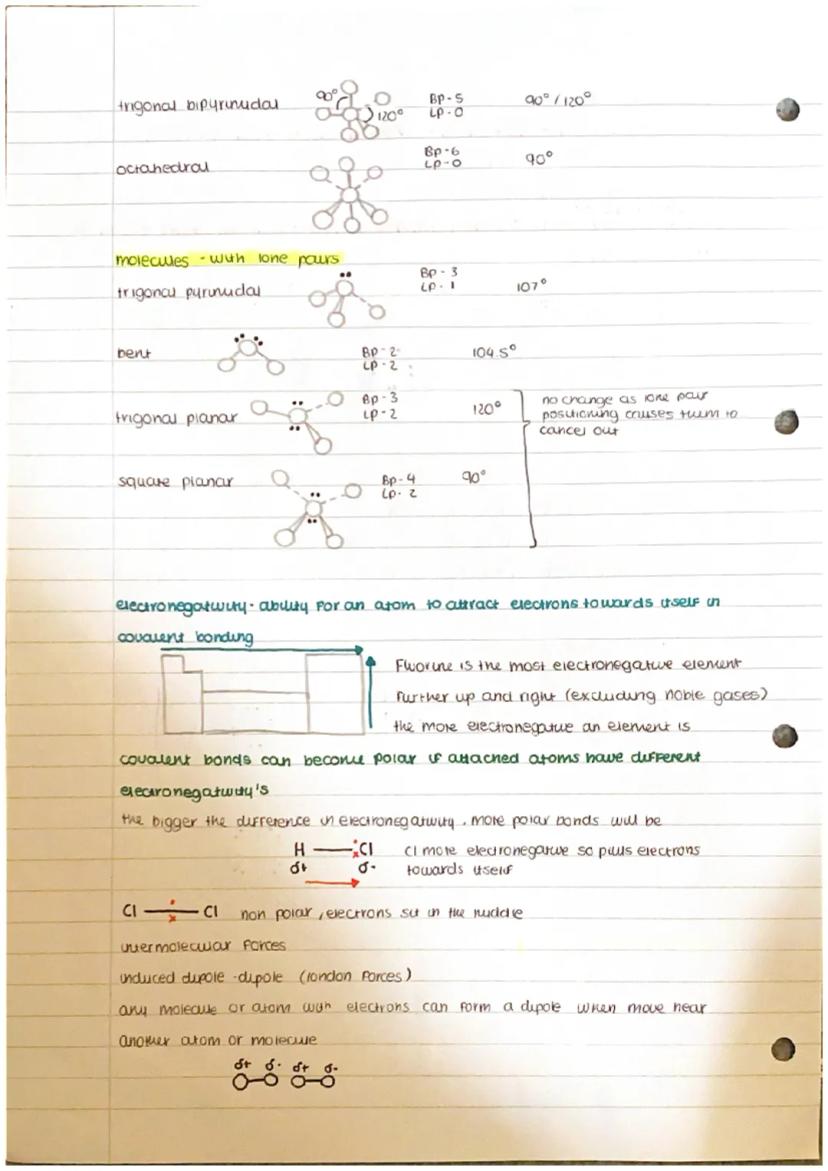 trigonal bipyrimidal 90° 120° BP-5 90°/120°
LP-0
octahedral BP-6 90°
LP-0
molecules - with lone pairs
trigonal pyrimidal BP-3 107°
LP-1
bent BP-2 104.5°
LP-2
trigonal planar BP-3 120° no change as lone pair
LP-2 positioning causes them to
cancel out
square planar BP-4 90°
LP-2
electronegativity - ability for an atom to attract electrons towards itself in
covalent bonding
Fluorine is the most electronegative element
further up and right (excluding noble gases)
the more electronegative an element is
covalent bonds can become polar if attached atoms have different
electronegativity's
the bigger the difference in electronegativity, more polar bonds will be
H Cl Cl more electronegative so pulls electrons
δ+ δ- towards itself
Cl Cl non polar, electrons sit in the middle
intermolecular forces
induced dipole-dipole (london forces)
any molecule or atom with electrons can form a dipole when move near
another atom or molecule
δ+ δ- δ+ δ-